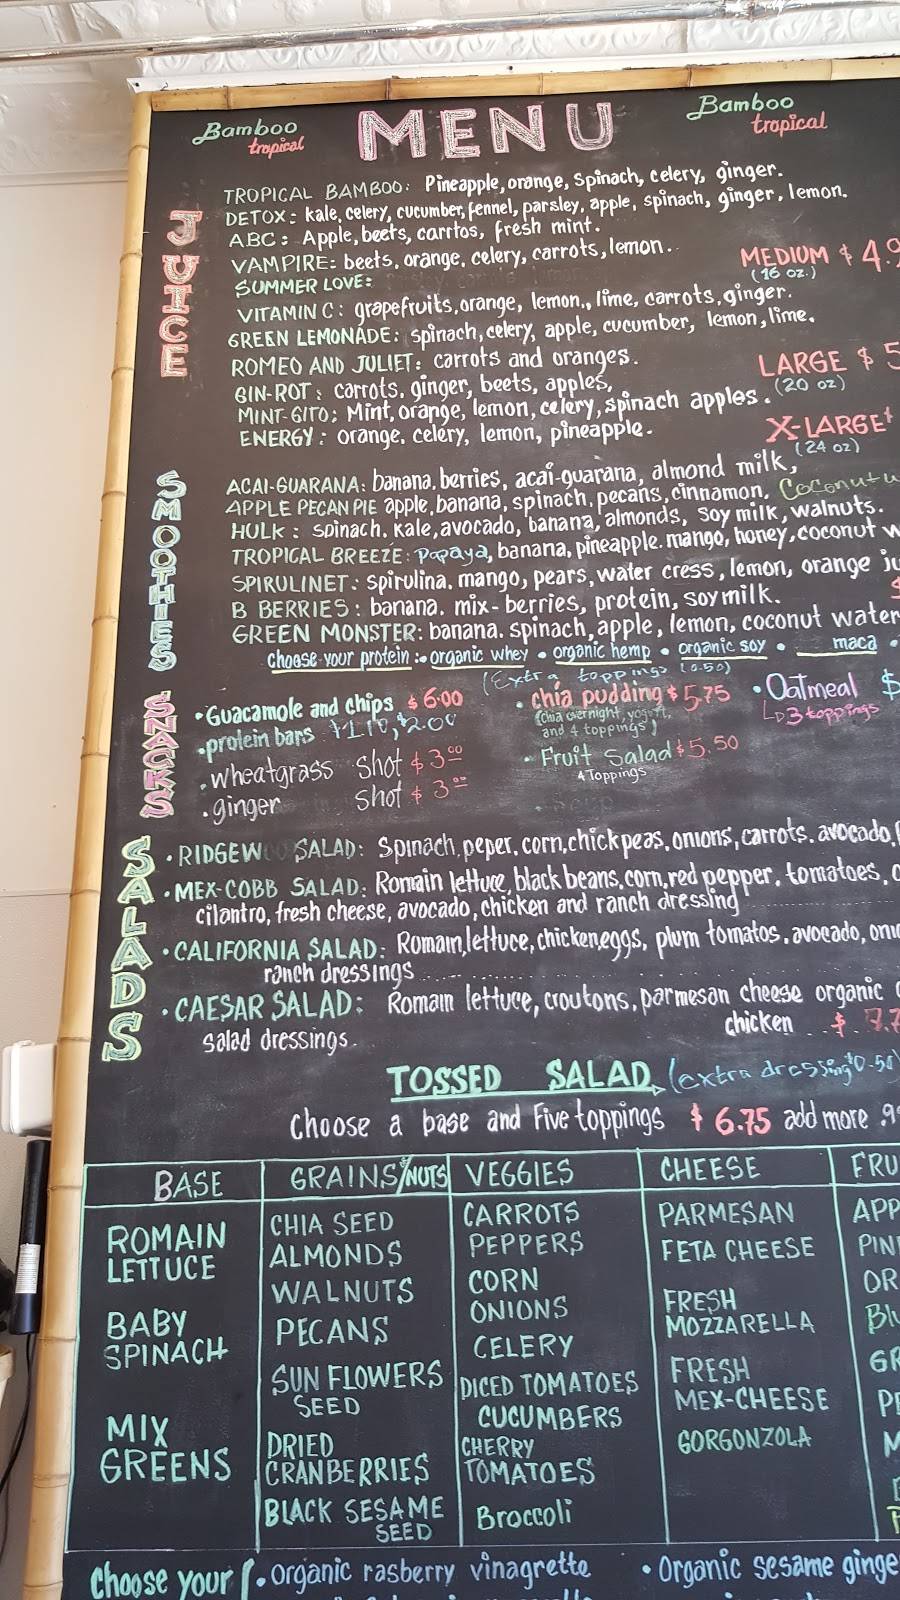 Bamboo tropical
MENU
Bamboo tropical
JUICE
TROPICAL BAMBOO: Pineapple, orange, Spinach, celery, ginger.
DETOX: kale, celery, cucumber, fennel, parsley, apple, spinach, ginger, lemon.
ABC: Apple, beets, carrtos, fresh mint.
VAMPIRE: beets, orange, celery, carrots, lemon.
MEDIUM $ 4.9
(16 oz.)
SUMMER LOVE:
VITAMIN C: grapefruits, orange, lemon, lime, carrots, ginger.
GREEN LEMONADE: spinach, celery, apple, cucumber, lemon, lime.
ROMEO AND JULIET: carrots and oranges.
LARGE $ 5
(20 oz)
GIN-ROT: carrots, ginger, beets, apples,
MINT-GITO: Mint, orange, lemon, celery, spinach apples.
ENERGY: orange, celery, lemon, pineapple.
X-LARGE $
(24 oz)
SMOOTHIES
ACAI-GUARANA: banana, berries, acaí-guarana, almond milk,
APPLE PECAN PIE apple, banana, spinach, pecans, cinnamon, Coconut w
HULK: spinach, kale, avocado, banana, almonds, soy milk, walnuts.
TROPICAL BREEZE: papaya, banana, pineapple, mango, honey, coconut w
SPIRULINET: spirulina, mango, pears, water cress, lemon, orange ju
B BERRIES: banana, mix-berries, protein, soymilk. $
GREEN MONSTER: banana, spinach, apple, lemon, coconut water
choose your protein: • organic whey • organic hemp • organic soy • maca •
(Extra toppings 0.50)
SNACKS
• Guacamole and chips $6.00
• protein bars $2.00
• wheatgrass Shot $3.00
• ginger Shot $3.00
• chia pudding $5.75
(chia overnight, yogurt,
and 4 toppings)
• Fruit Salad $5.50
4 Toppings
• Oatmeal $
3 toppings
SALADS
• RIDGEW SALAD: Spinach, peper, corn, chickpeas, onions, carrots, avocado,
• MEX-COBB SALAD: Romain lettuce, black beans, corn, red pepper, tomatoes,
cilantro, fresh cheese, avocado, chicken and ranch dressing
• CALIFORNIA SALAD: Romain, lettuce, chicken, eggs, plum tomatos, avocado, oni
ranch dressings
• CAESAR SALAD: Romain lettuce, croutons, parmesan cheese organic
salad dressings. chicken $ 7.7
TOSSED SALAD (extra dressing $0.50)
Choose a base and Five toppings $ 6.75 add more .9
BASE
ROMAIN
LETTUCE
BABY
SPINACH
MIX
GREENS
GRAINS/NUTS
CHIA SEED
ALMONDS
WALNUTS
PECANS
SUN FLOWERS
SEED
DRIED
CRANBERRIES
BLACK SESAME
SEED
VEGGIES
CARROTS
PEPPERS
CORN
ONIONS
CELERY
DICED TOMATOES
CUCUMBERS
CHERRY
TOMATOES
Broccoli
CHEESE
PARMESAN
FETA CHEESE
FRESH
MOZZARELLA
FRESH
MEX-CHEESE
GORGONZOLA
FRU
APP
PIN
OR
Blu
GR
PE
M
Choose your
• Organic rasberry vinagrette
• Organic sesame ginge